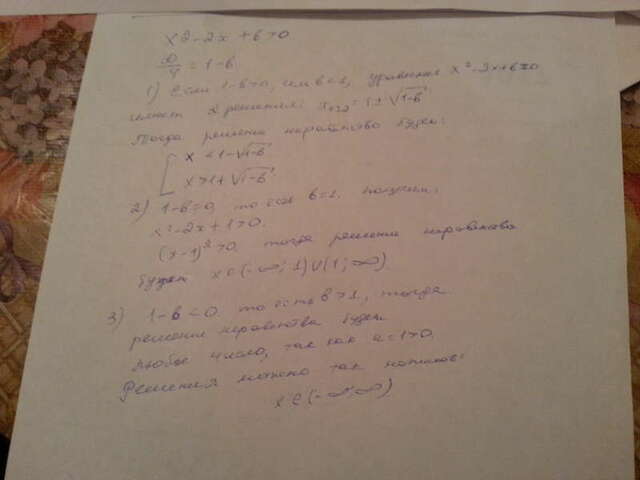 x² - 2x + b > 0
D/4 = 1 - b
1) Если 1-b>0, или b<1, уравнение x² - 2x + b = 0
имеет 2 решения: x₁,₂ = 1 ± √1-b
Тогда решение неравенства будет:
[ x < 1 - √1-b
x > 1 + √1-b
2) 1-b=0, то есть b=1. получим:
x² - 2x + 1 > 0.
(x-1)² > 0. тогда решение неравенства
будет x ∈ (-∞; 1) ∪ (1; ∞)
3) 1-b < 0. то есть b > 1, тогда
решение неравенства будет
любое число, так как a = 1 > 0.
Решения можно так написать:
x ∈ (-∞; ∞)